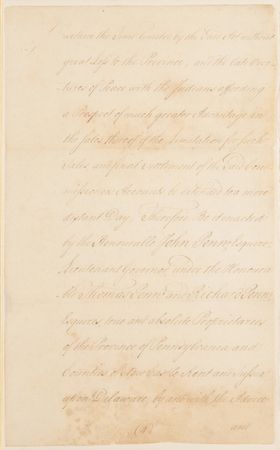 reduce the same limited by the said Act without
great Loss to the Province, and the late Over-
tures of Peace with the Indians affording
a Prospect of much greater Advantage in
the Sales thereof if the Limitation for such
Sales, and final Settlement of the said Com-
missioners Accounts be extended to a more
distant Day. Therefore Be it enacted
by the Honourable John Penn Esquire,
Lieutenant Governor, under the Honoura-
ble Thomas Penn and Richard Penn,
Esquires, true and absolute Proprietaries
of the Province of Pennsylvania and
Counties of New Castle Kent and Sussex
upon Delaware, by and with the Advice
and